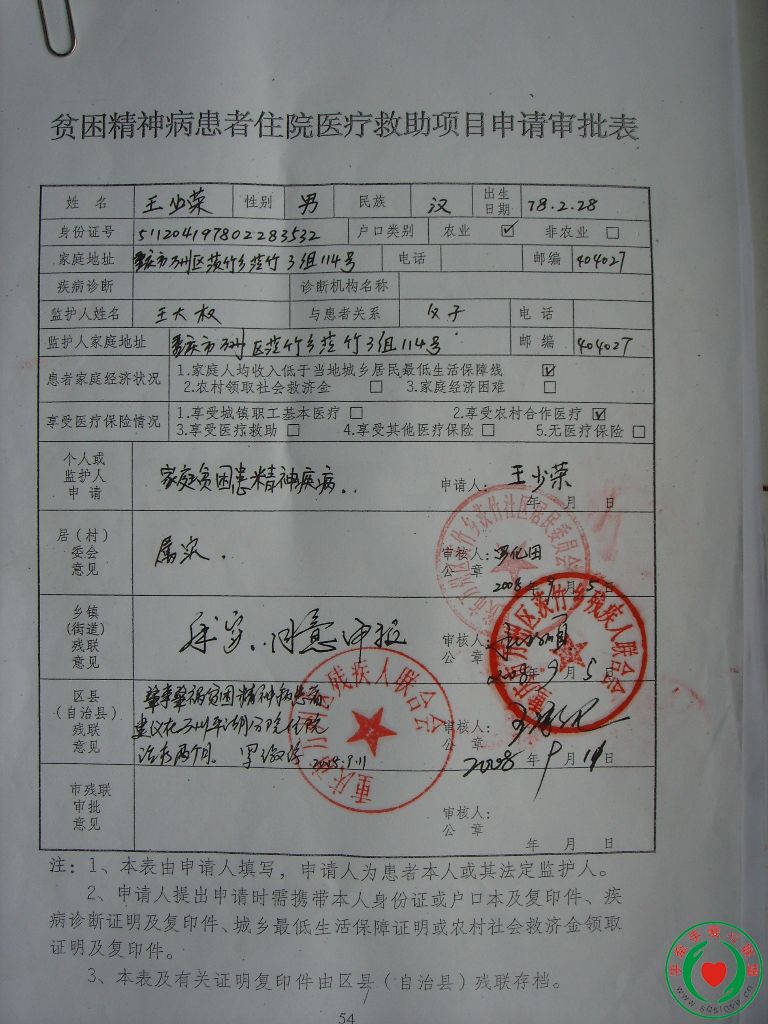 贫困精神病患者住院医疗救助项目申请审批表
姓 名 王少荣 性别 男 民族 汉 出生日期 78.2.28
身份证号 511204197802283532 户口类别 农业 ☑ 非农业 □
家庭地址 重庆市万州区茨竹乡茨竹3组114号 电话 邮编 404027
疾病诊断 诊断机构名称
监护人姓名 王大权 与患者关系 父子 电 话
监护人家庭地址 重庆市万州区茨竹乡茨竹3组114号 邮 编 404027
患者家庭经济状况 1.家庭人均收入低于当地城乡居民最低生活保障线 ☑
2.农村领取社会救济金 □ 3.家庭经济困难 □
享受医疗保险情况 1.享受城镇职工基本医疗 □ 2.享受农村合作医疗 ☑
3.享受医疗救助 □ 4.享受其他医疗保险 □ 5.无医疗保险 □
个人或监护人申请 家庭贫困患精神疾病. 申请人: 王少荣
年 月 日
居(村)委会意见 属实. 审核人:
公 章
2008年9月5日
乡镇(街道)残联意见 属实. 同意申报 审核人:
公 章
2008年9月5日
区县(自治县)残联意见 肇事肇祸贫困精神病患者
建议在万州平湖分院住院
治疗两个月. 2008.9.11
审核人:
公 章
2008年9月11日
重庆市万州区残疾人联合会
市残联审批意见 审核人:
公 章
年 月 日
注:1、本表由申请人填写,申请人为患者本人或其法定监护人。
2、申请人提出申请时需携带本人身份证或户口本及复印件、疾
病诊断证明及复印件、城乡最低生活保障证明或农村社会救济金领取
证明及复印件。
3、本表及有关证明复印件由区县(自治县)残联存档。
54